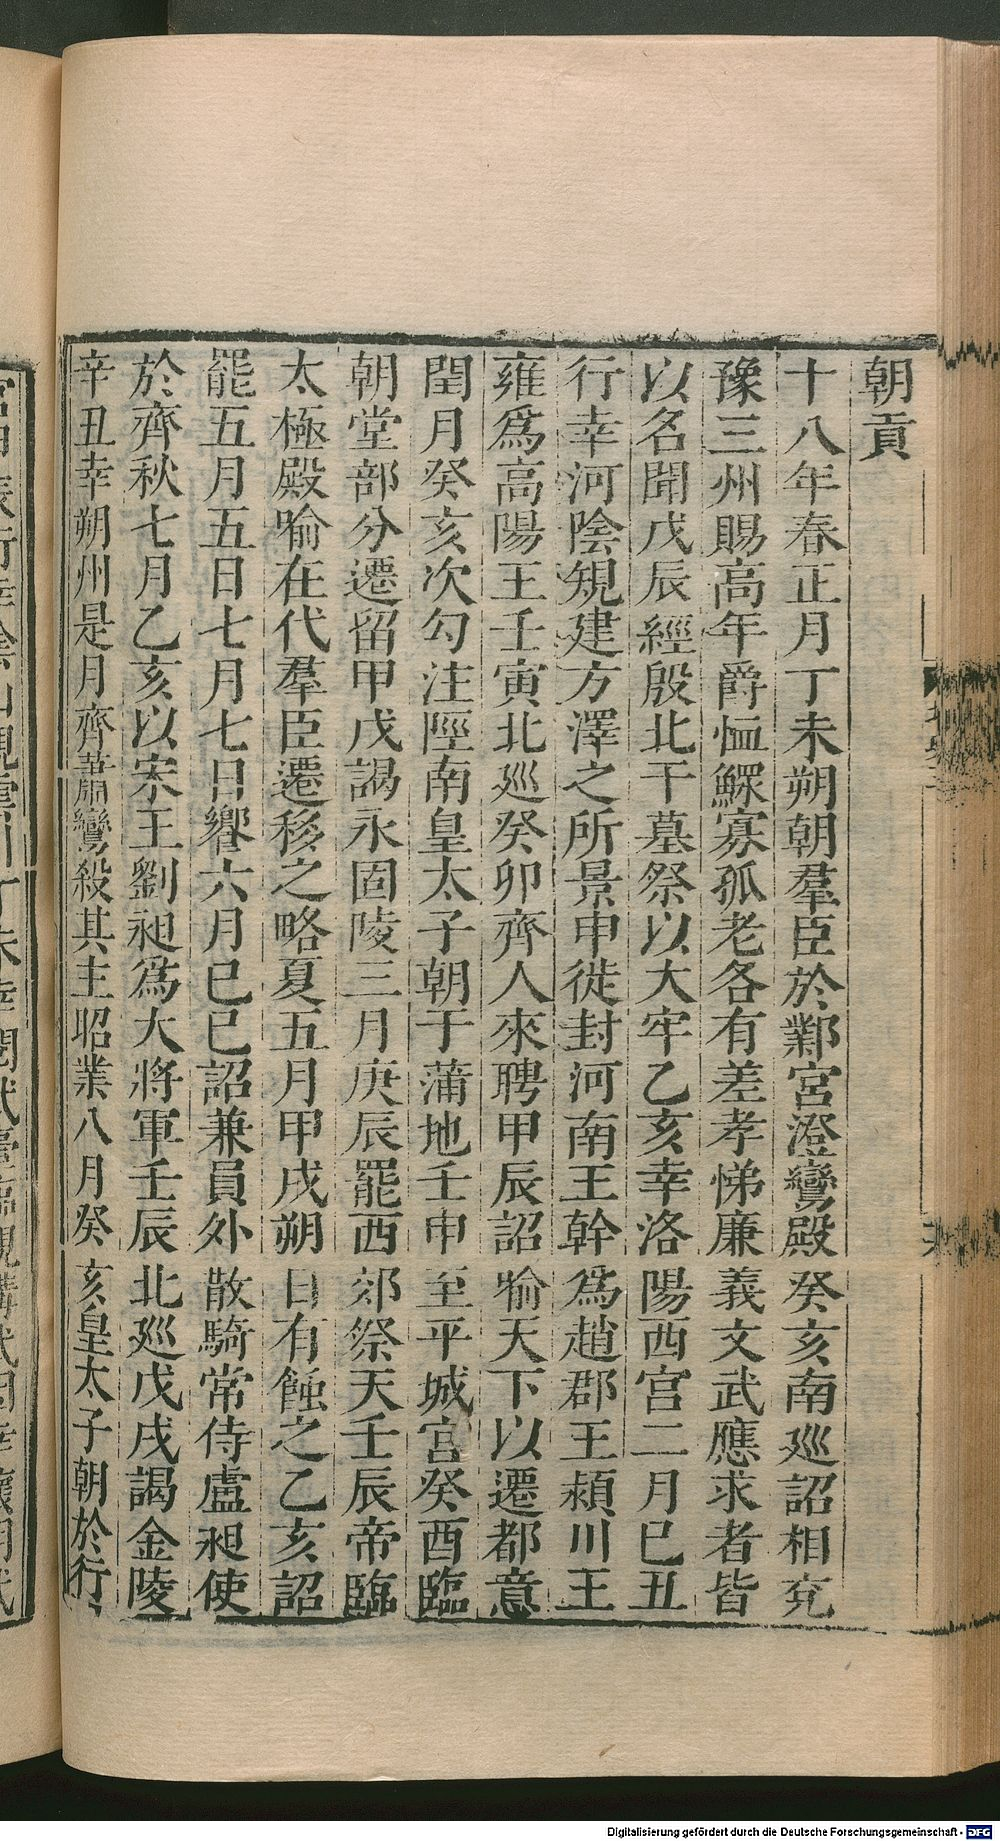 朝貢
十八年春正月丁未朔朝羣臣於鄴宮澄鸞殿癸亥南巡詔相兖
豫三州賜高年爵恤鰥寡孤老各有差孝悌廉義文武應求者皆
以名聞戊辰經殷比干墓祭以大牢乙亥幸洛陽西宮二月巳丑
行幸河陰規建方澤之所景申徙封河南王幹為趙郡王潁川王
雍爲高陽王壬寅北廵癸卯齊人來聘甲辰詔喻天下以遷都意
閏月癸亥次勾注陘南皇太子朝于蒲地壬申至平城宮癸酉臨
朝堂部分遷留甲戌謁永固陵三月庚辰罷西郊祭天壬辰帝臨
太極殿喻在代羣臣遷移之略夏五月甲戌朔日有蝕之乙亥詔
罷五月五日七月七日饗六月巳巳詔兼員外散騎常侍盧昶使
於齊秋七月乙亥以宋王劉昶爲大將軍壬辰北廵戊戌謁金陵
辛丑幸朔州是月齊蕭鸞殺其主昭業八月癸亥皇太子朝於行
Digitalisierung gefördert durch die Deutsche Forschungsgemeinschaft - DFG